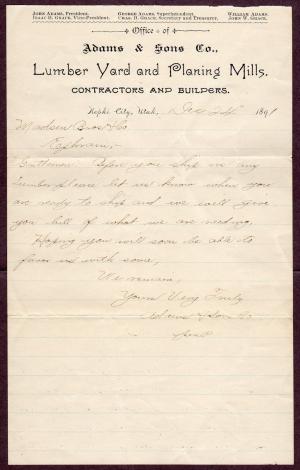 JOHN ADAMS, President. GEORGE ADAMS, Superintendent. WILLIAM ADAMS,
ISAAC H. GRACE, Vice-President. CHAS. H. GRACE, Secretary and Treasurer. JOHN W. GRACE.
Office of
Adams & Sons Co.,
Lumber Yard and Planing Mills,
CONTRACTORS AND BUILDERS.
Nephi City, Utah, Dec 24 1891
Madsen Bros & Co
Ephraim,
Gentlemen. Before you ship in any
lumber please let us know when you
are ready to ship and we will give
you bill of what we are needing,
Hoping you will soon be able to
favor us with some,
We remain,
Yours Very Truly
Adams & Sons Co